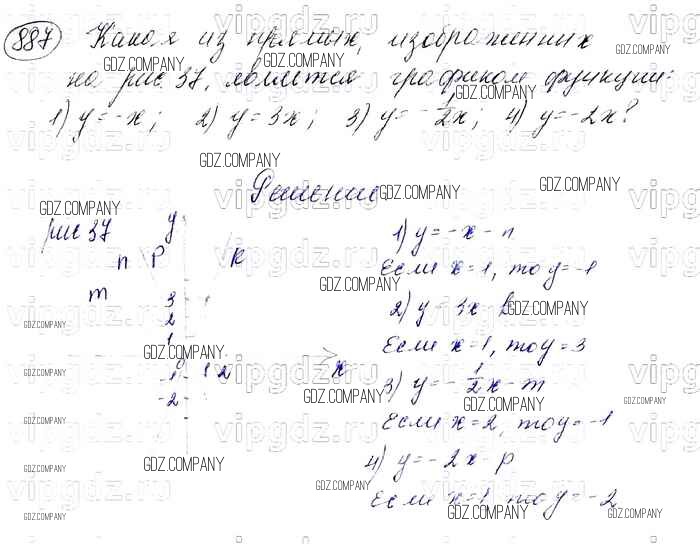 887 Какая из прямых, изображенных
на рис. 37, является графиком функции:
1) y = -x; 2) y = 3x; 3) y = -1/2x; 4) y = -2x?
Решение
рис 37
y
n p k
m
3
2
1
0
-1 1 2 x
-2
1) y = -x - n
Если x = 1, то y = -1
2) y = 3x - k
Если x = 1, то y = 3
3) y = -1/2x - m
Если x = 2, то y = -1
4) y = -2x - p
Если x = 1 то y = -2
GDZ.COMPANY
vipgdz.ru